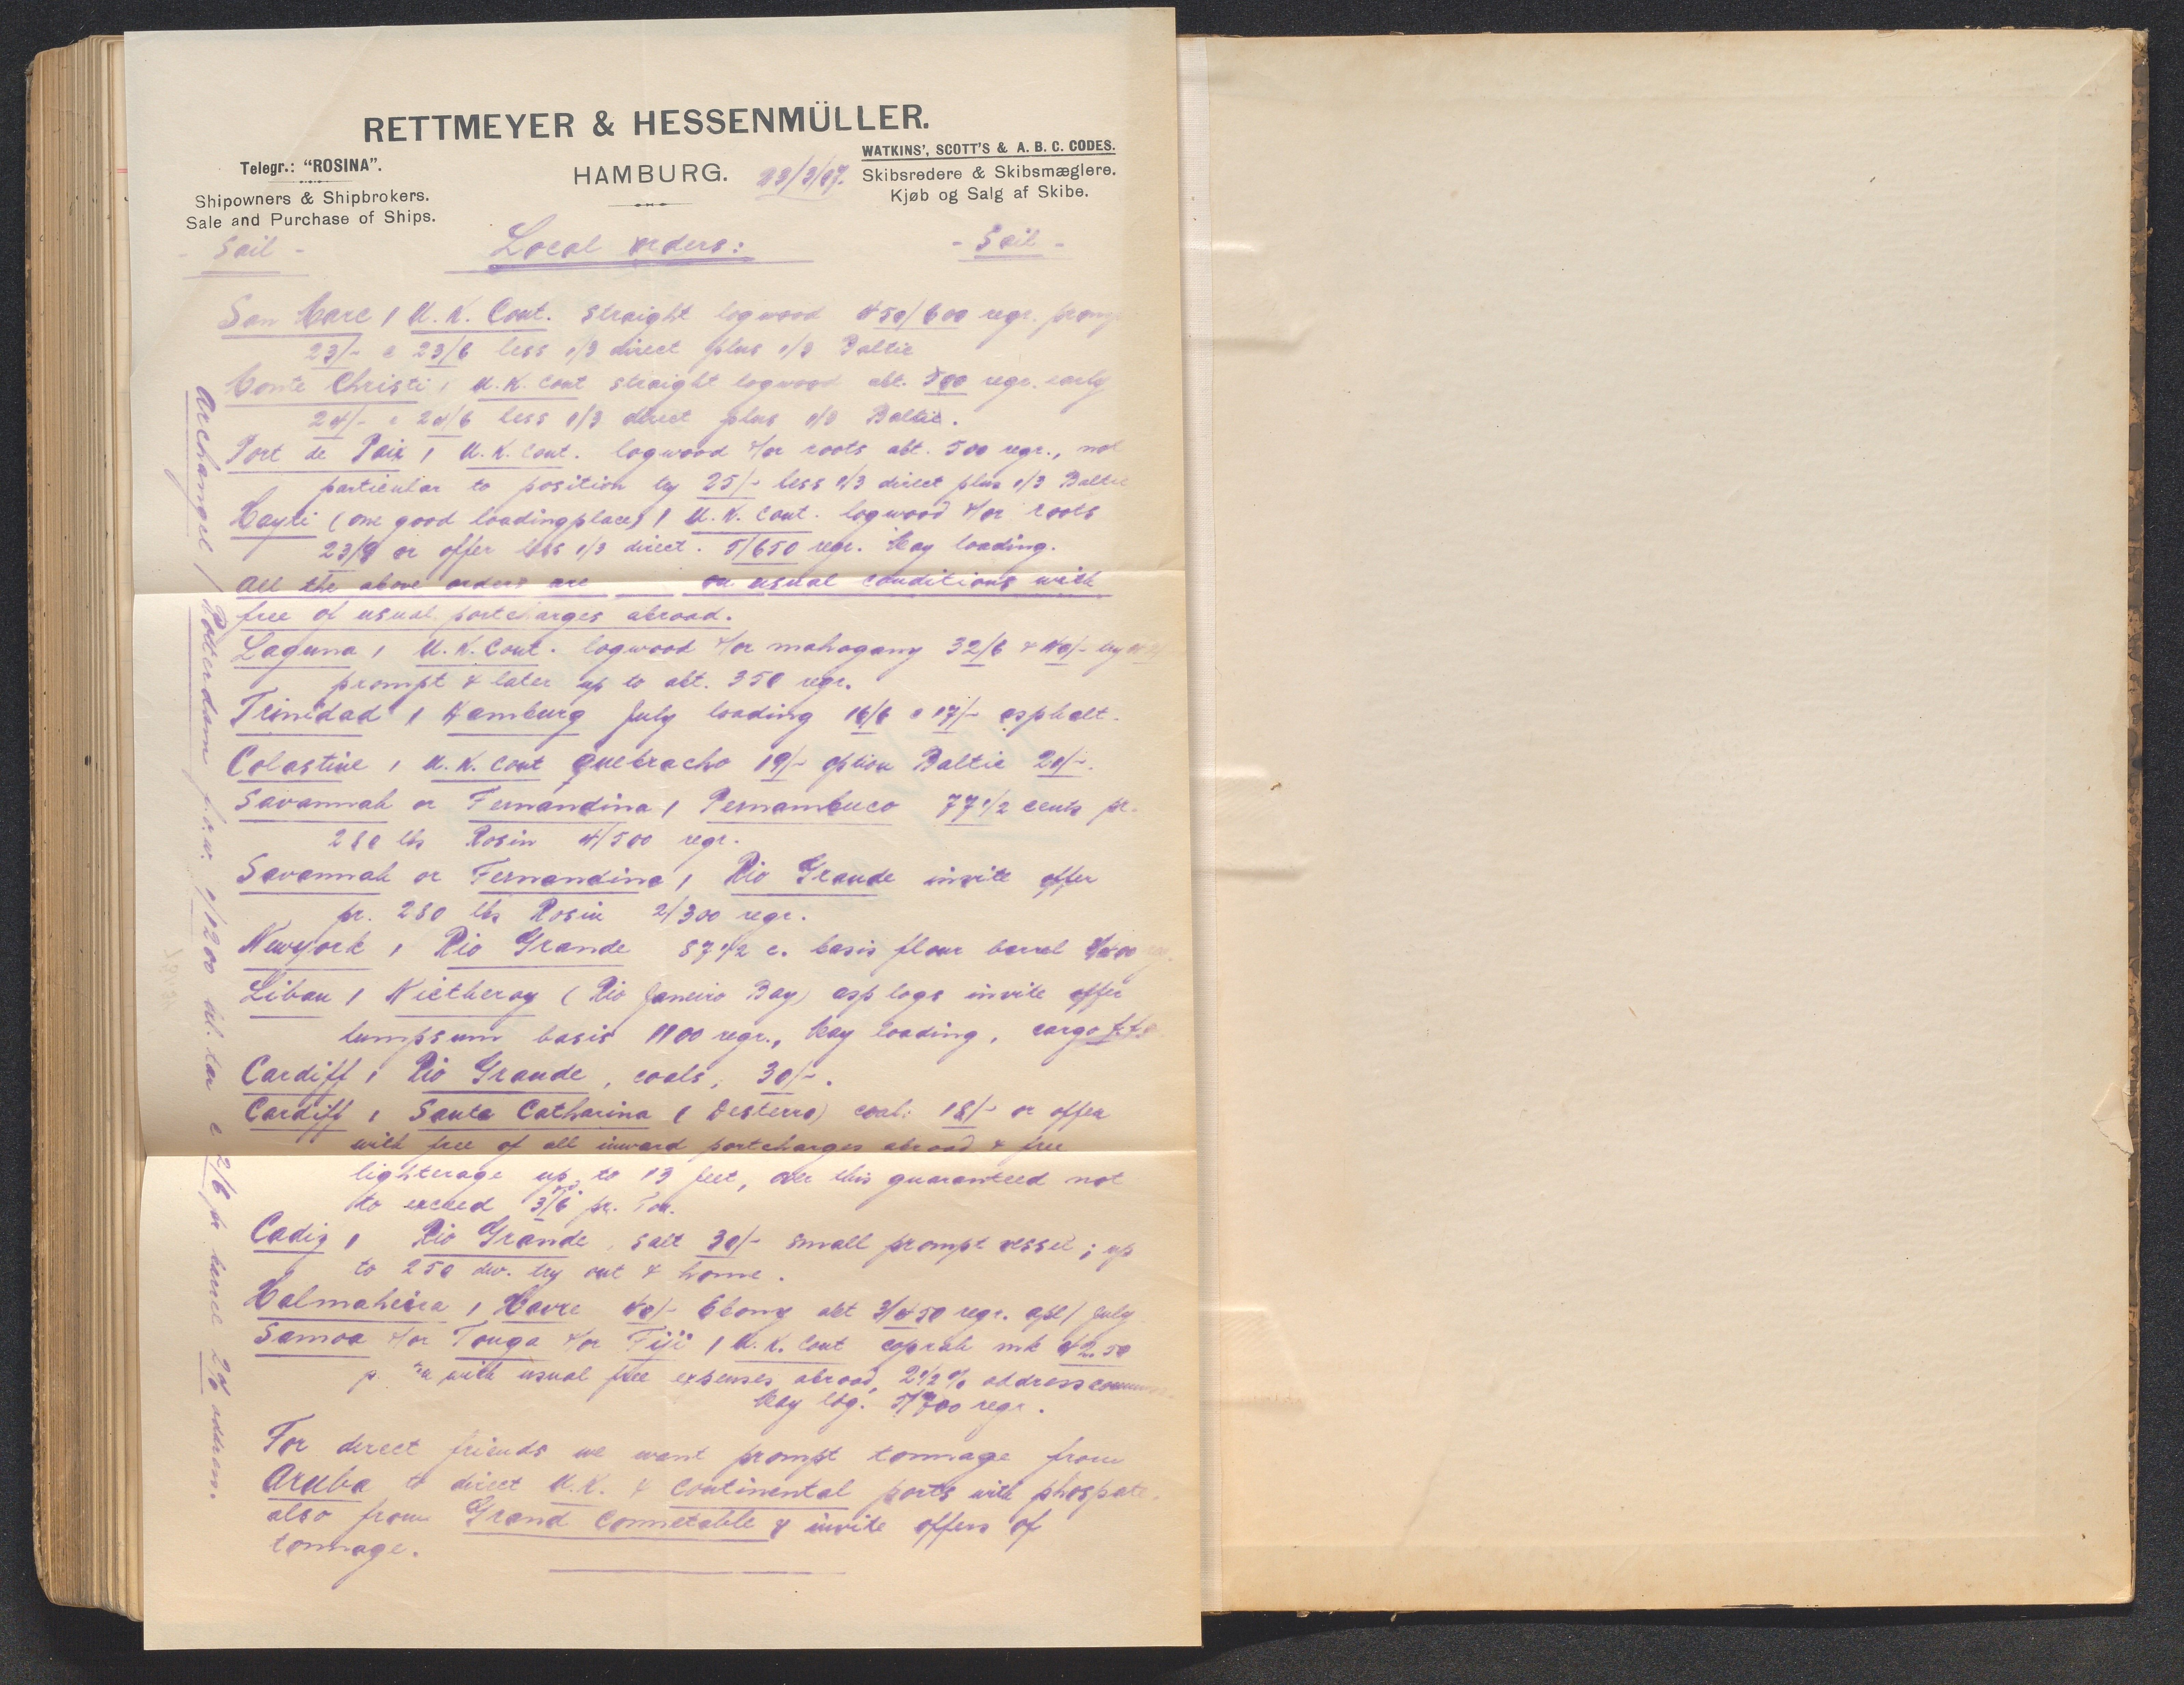 RETTMEYER & HESSENMÜLLER.
Telegr.: "ROSINA".
Shipowners & Shipbrokers.
Sale and Purchase of Ships.
HAMBURG.
WATKINS', SCOTT'S & A. B. C. CODES.
Skibsredere & Skibsmæglere.
Kjøb og Salg af Skibe.
- Sail - Local orders: - Sail -
San Marc / U. K. Cont. straight logwood 450/600 regr.
23/- a 23/6 less 1/3 direct plus 1/3 Baltic
Monte Christi / U. K. Cont straight logwood abt. 500 regr. early
24/- a 24/6 less 1/3 direct plus 1/3 Baltic.
Port de Paix / U. K. Cont. logwood &/or roots abt. 500 regr., not
particular to position try 25/- less 1/3 direct plus 1/3 Baltic
Hayti (one good loadingplace) / U. K. Cont. logwood &/or roots
23/9 or offer less 1/3 direct. 5/650 regr. May loading.
All the above orders are on usual conditions with
free of usual portcharges abroad.
Laguna / U. K. Cont. logwood &/or mahogany 32/6 & 40/- try
prompt & later up to abt. 350 regr.
Trinidad / Hamburg July loading 16/6 a 17/- asphalt.
Colastine / U. K. Cont Quebracho 19/- option Baltic 20/-.
Savannah or Fernandina / Pernambuco 77 1/2 cents pr.
280 lbs Rosin 4/500 regr.
Savannah or Fernandina / Rio Grande invite offer
pr. 280 lbs Rosin 2/300 regr.
Newyork / Rio Grande 87 1/2 c. basis flour barrel
Libau / Nictheroy (Rio Janeiro Bay) asp logs invite offer
lumpsum basis 1100 regr., May loading, cargo
Cardiff / Rio Grande, coals, 30/-.
Cardiff / Santa Catharina (Desterro) coal: 18/- or offer
with free of all inward portcharges abroad & free
lighterage up to 13 feet, over this guaranteed not
to exceed 3/6 pr. Ton.
Cadiz / Rio Grande, salt 30/- small prompt vessel; up
to 250 dw. try out & home.
Halmaheira / Havre 40/- Ebony abt 3/450 regr. apl / July
Samoa &/or Tonga &/or Fiji / U. K. Cont coprah mk 42.50
p. with usual free expenses abroad, 2 1/2 % address
May ldg. 5/700 regr.
For direct friends we want prompt tonnage from
Aruba to direct U. K. & Continental ports with phospate.
also from Grand Connetable & invite offers of
tonnage.
Archangel / Rotterdam f.o.w. 1/1200 bl. tar a 2/6 pr barrel 2% address.